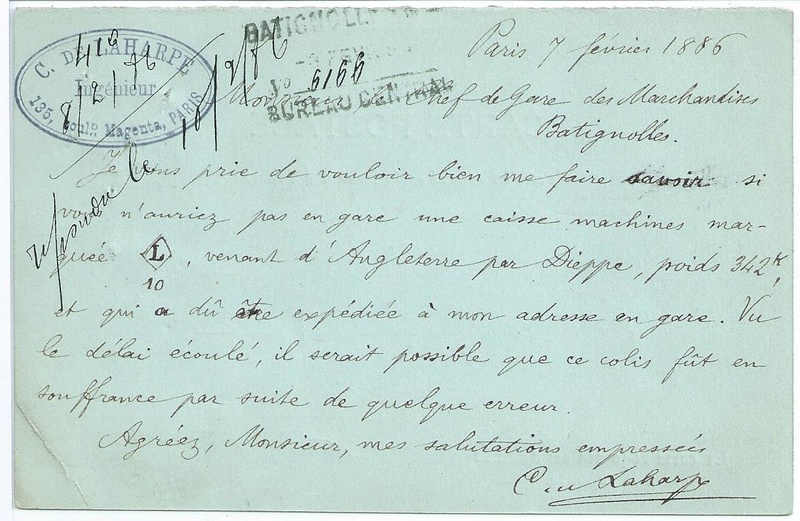 C. DE LAHARPE
Ingénieur
135, Boulᵈ. Magenta, PARIS
8/2/86
10/2/86
BATIGNOLLES
FEVR
Nº 6166
BUREAU CENTRAL
Paris 7 février 1886
Chef de Gare des Marchandises
Batignolles.
Je vous prie de vouloir bien me faire savoir si
vous n'auriez pas en gare une caisse machines mar-
quée L , venant d'Angleterre par Dieppe, poids 342ᴷ,
10
et qui a dû être expédiée à mon adresse en gare. Vu
le délai écoulé, il serait possible que ce colis fût en
souffrance par suite de quelque erreur.
Agréez, Monsieur, mes salutations empressées
C. de Laharpe